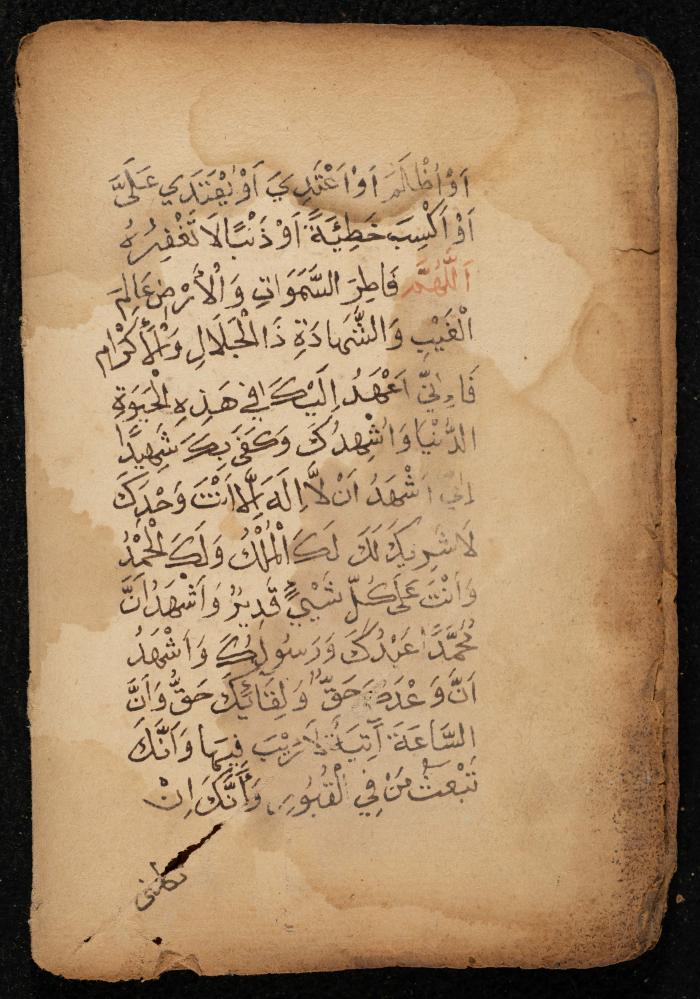 اَوْ اُظْلَمَ اَوْ اَعْتَدِيَ اَوْ يُعْتَدَي عَلَيَّ
اَوْ اَكْسِبَ خَطِيْئَةً اَوْ ذَنْبًا لَا تَغْفِرُهُ
اَللّٰهُمَّ فَاطِرَ السَّمَوَاتِ وَالْأَرْضِ عَالِمَ
الْغَيْبِ وَالشَّهَادَةِ ذَا الْجَلَالِ وَالْأِكْرَامِ
فَاِنِّيْ اَعْهَدُ اِلَيْكَ فِي هَذِهِ الْحَيَوةِ
الدُّنْيَا وَاُشْهِدُكَ وَكَفَى بِكَ شَهِيدًا
اِنِّي اَشْهَدُ اَنْ لَّا اِلَهَ اِلَّا اَنْتَ وَحْدَكَ
لَا شَرِيْكَ لَكَ لَكَ الْمُلْكُ وَلَكَ الْحَمْدُ
وَاَنْتَ عَلَى كُلِّ شَيْئٍ قَدِيْرُ وَاَشْهَدُ اَنَّ
مُحَمَّدًا عَبْدُكَ وَرَسُولُكَ وَاَشْهَدُ
اَنَّ وَعْدَكَ حَقٌّ وَلِقَائَكَ حَقٌّ وَاَنَّ
السَّاعَةَ آتِيَةٌ لَا رَيْبَ فِيهَا وَاَنَّكَ
تَبْعَثُ مَنْ فِي الْقُبُورِ وَأَنَّكَ اِنْ
تكلني